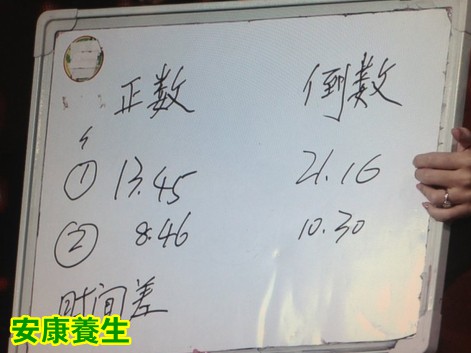 正数 倒数
① 13.45 21.16
② 8.46 10.30
时间差
安康養生